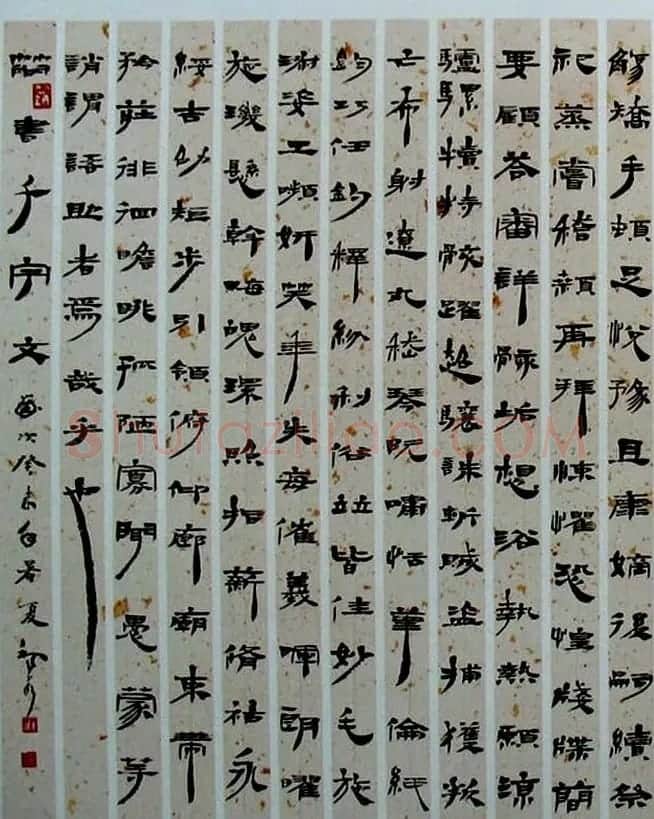 觴矯手頓足悅豫且康嫡後嗣續祭
祀蒸嘗稽顙再拜悚懼恐惶牋牒簡
要顧答審詳骸垢想浴執熱願涼
驢騾犢特駭躍超驤誅斬賊盜捕獲叛
亡布射遼丸嵇琴阮嘯恬筆倫紙
鈞巧任釣釋紛利俗並皆佳妙毛施
淑姿工嚬妍笑年矢每催羲暉朗曜
旋璣懸斡晦魄環照指薪脩祜永
綏吉劭矩步引領俯仰廊廟束帶
矜莊徘徊瞻眺孤陋寡聞愚蒙等
誚謂語助者焉哉乎也
簡書千字文 歲次癸未
Shufaziliao.COM